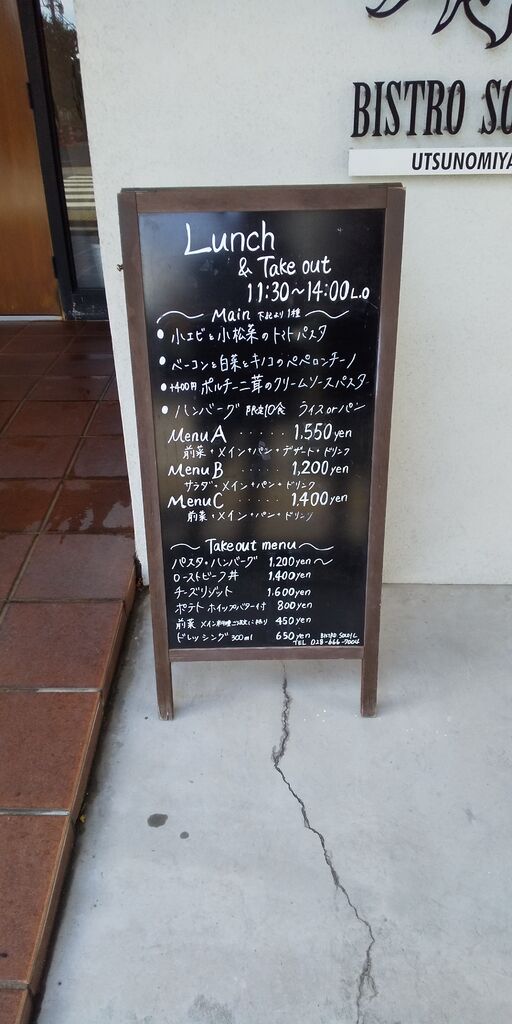 BISTRO SO
UTSUNOMIYA
Lunch
& Take out
11:30~14:00 L.O
Main 下記より1種
• 小エビと小松菜のトマトパスタ
• ベーコンと白菜とキノコのペペロンチーノ
• +400円 ポルチーニ茸のクリームソースパスタ
• ハンバーグ 限定10食 ライスorパン
Menu A ····· 1,550yen
前菜・メイン・パン・デザート・ドリンク
Menu B ····· 1,200yen
サラダ・メイン・パン・ドリンク
Menu C ····· 1,400yen
前菜・メイン・パン・ドリンク
Takeout menu
パスタ・ハンバーグ 1,200yen~
ローストビーフ丼 1,400yen
チーズリゾット 1,600yen
ポテト ホイップバター付 800yen
前菜 メイン料理ご注文に限り 450yen
ドレッシング 300ml 650yen
BISTRO SOLEIL
TEL 028-666-7004